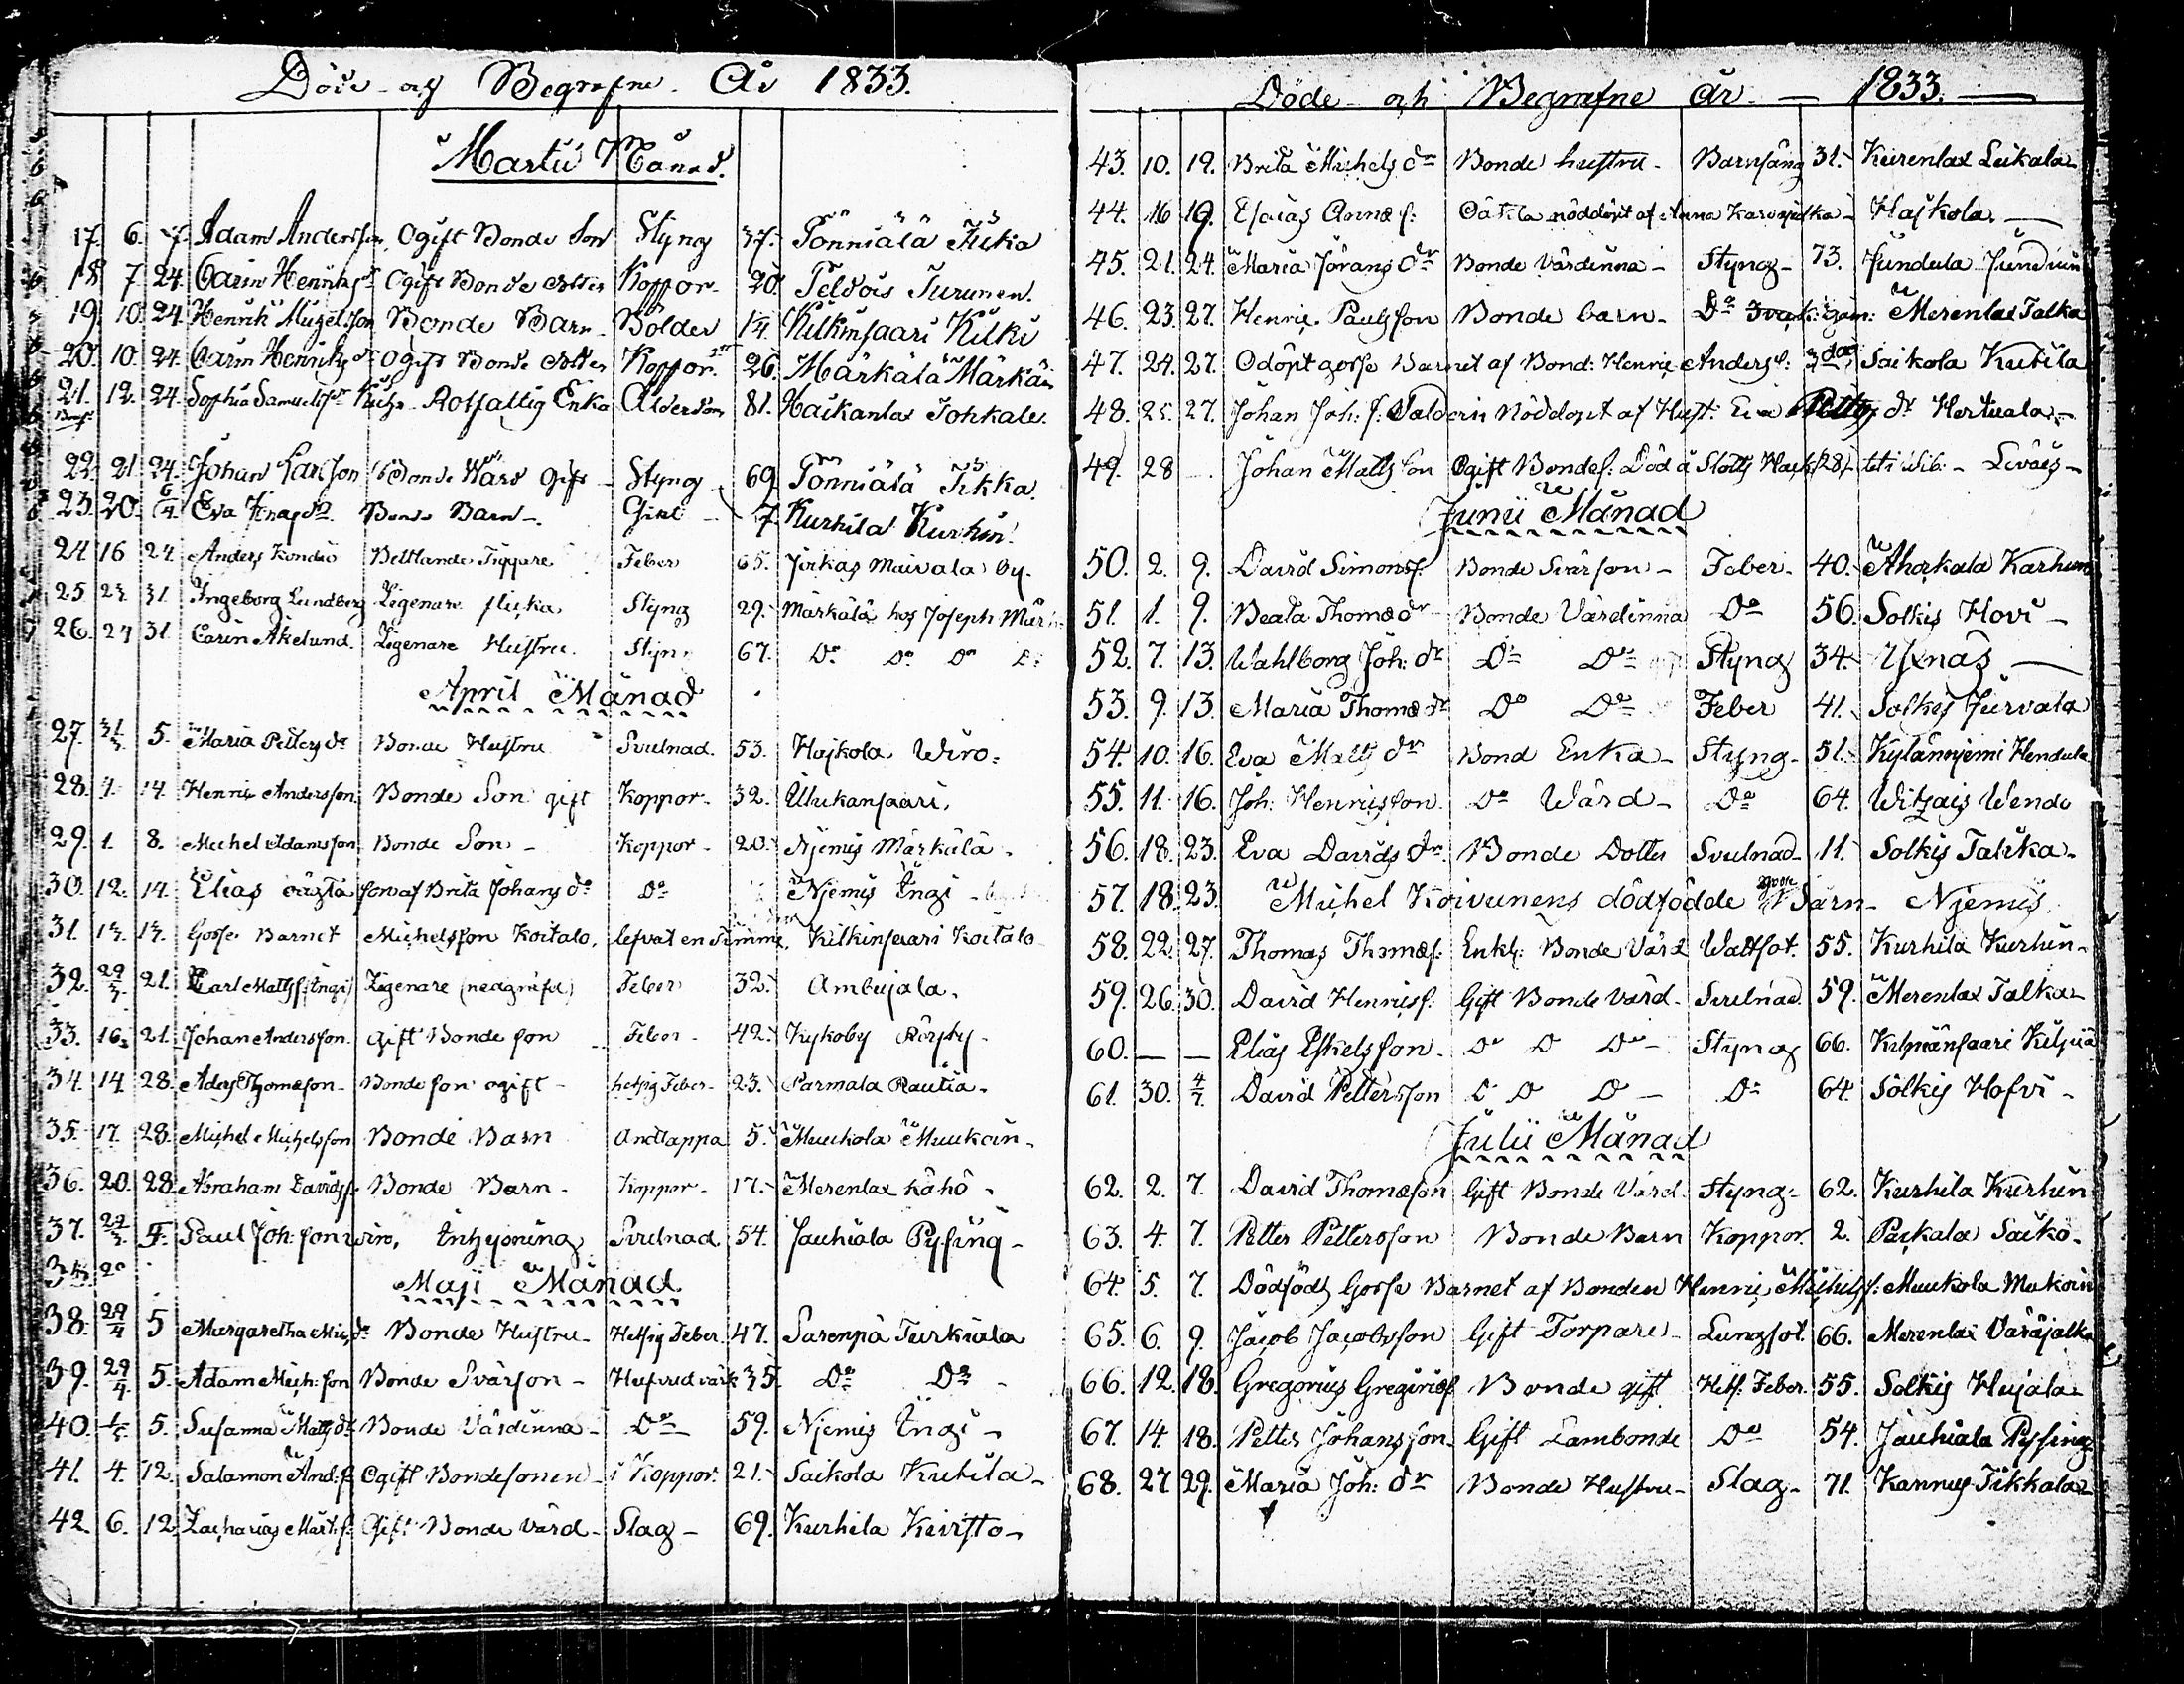 Döde och Begrafne År 1833.
Martii Månad.
17. 6. 7. Adam Andersson Ogift Bonde Son Styng 37. Tönniälä Tikka
18 7 24 Carin Henriks dr Ogift Bonde dotter Koppor 20. Teldois Turunen.
19. 10. 24 Henrik Son Bonde Barn Bölder 1/4 Kilkinsaari Kilki
20. 10. 24. Carin Henriks dr Ogift Bonde dotter Koppor. 26. Märkälä Märkäin
21. 12. 24. Sophia Samuels dr Enka Ålderdom 81. Haikanlax Tohkale.
22. 21. 24. Johan Larsson Bonde Wärd Gift Styng 69 Tönniälä Tikka.
23. 20. 6/4. Eva dr. Bonde Barn Gikt 7. Kurkila Kurkin.
24 16 24. Anders Kondio Bettlande Tiggare Feber 65. Jirkas Maivala By.
25 23 31. Ingeborg Lundberg Zigenare flicka Styng 29. Märkälä hos Joseph
26. 27 31. Carin Åkelund. Zigenare Hustru. Styng 67. Do Do Do Do
April Månad
27. 31/3 5. Maria Petters dr Bonde Hustru Svulnad. 53. Hajkola Wiro.
28. 7. 14. Henric Andersson Bonde Son gift Koppor. 32. Uhukansaari.
29. 1. 8. Michel Adamsson Bonde Son Koppor 20. Njemis Märkälä.
30. 12. 14. Elias oägta son af Brita Johans dr Do Njemis Ingi
31. 13. 14. Gosse Barnet Michelsson Koitalo, lefvat en timme, Kilkinsaari Koitalo
32. 29/3. 21. Carl Matts s. Ingi Zigenare Feber 32. Ambujala.
33. 16. 21. Johan Andersson. Gift Bonde son Feber 42. Kykoby Rörsky.
34. 14 28. Anders Thomæson Bonde son ogift hetsig Feber 23. Parmala Rautia.
35. 17. 28. Michel Michelsson Bonde Barn Andtäppa 5. Muukola Muukoin.
36. 20. 28. Abraham Davids s. Bonde Barn Koppor 17. Merenlax höhö.
37. 29/3. Paul Joh: son Inhysning Svulnad 54. Jauhiala Pysing
Maji Månad
38. 29/4 5 Margaretha Mich dr Bonde Hustru Hetsig Feber. 47. Sarenpä Turkiala
39. 29/4. 5. Adam Mich: son Bonde Svärson Hufvud värk 35. Do Do
40. 1/5 5. Susanna Matts dr Bonde Värdinna Do 59. Njemis Ingi
41. 4. 12. Salamon And: s. Ogift Bondesonen i Koppor. 21. Saikola Kutila
42. 6. 12. Zacharias Mårt: s. Gift Bonde värd Slag 69. Kurkila Keirsto
Döde och Begrafne År 1833.
43. 10. 19. Brita Michels dr Bonde hustru Barnsäng 31. Kurenlax Leikala
44. 16 19. Esaias Annæ s: Oäkta nöddöpt af Anna Karvojalka Hajkola.
45. 21. 24. Maria Jörans dr Bonde Värdinna Styng 73. Jundula Jundoin
46. 23. 27. Henric Paulsson Bonde barn Do 3 Merenlax Talka
47. 24. 27. Odöpt gosse Barnet af Bond: Henric Anders s: 3 dar Saikola Kutila
48. 25. 27. Johan Joh: s. nöddöpt af Hust: Eva Petters dr Hertuala
49. 28 Johan Mattsson Ogift Bonde s: Död å Slotts 28
Junii Månad
50. 2. 9. David Simons s. Bonde Svärson Feber. 40. Ahokala Karhun
51. 1. 9. Beata Thomæ dr Bonde Värdinna Do 56. Solkis Hovi
52. 7. 13. Wahlborg Joh: dr Do Do Styng 34.
53. 9. 13. Maria Thomæ dr Do Do Feber 41. Solkis Jurvala
54. 10. 16. Eva Matts dr Bond Enka Styng 51. Kylänniemi Hendula
55. 11. 16. Joh: Henricsson. Do Wärd Do 64. Witsais Wendo
56. 18. 23. Eva Davids dr. Bonde Dotter Svulnad 11. Solkis Talika
57. 18. 23. Michel Koivunens dödfödde gosse Barn Njemis.
58. 22. 27. Thomas Thomæ s: Enkl: Bonde Värd Wattsot. 55. Kurkila Kurkin
59. 26. 30. David Henrics s: Gift Bonde värd. Svulnad 59. Merenlax Talka
60. — — Elias Eskelsson. Do Do Do Styng 66. Kilpiänsaari Kilpiä
61. 30. 4/7. David Pettersson Do Do Do Do 64. Solkis Hofvi
Julii Månad
62. 2. 7. David Thomæson Gift Bonde Värd. Styng 62. Kurkila Kurkin
63. 4. 7. Petter Pettersson Bonde Barn Koppor. 2. Packala Saiko.
64. 5. 7. Dödföds Gosse Barnet af Bonden Henric Michels s: Muukola Mukoin
65. 6. 9. Jacob Jacobsson Gift Torpare Lungsot. 66. Merenlax Varäjalka
66. 12. 18. Gregorius Gregorii s. Bonde gift Hets: Feber. 55. Solkis Hujala
67. 14 18. Petter Johansson. Gift Lambonde Do 54. Jauhiala Pysing
68. 27. 29. Maria Joh: dr Bonde Hustru Slag 71. Kannus Tikkala